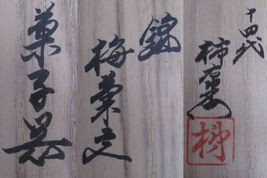 十四代
柿右衛門
錦
梅菊文
菓子器